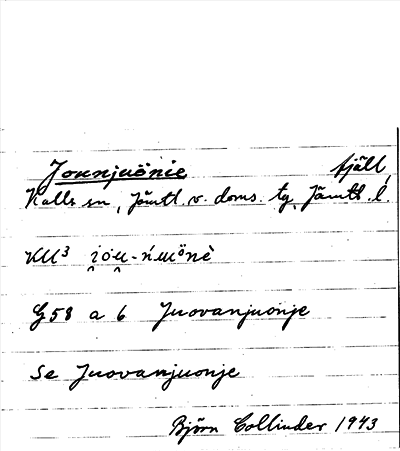 Jounjuönie fjäll,
Kalls sn, Jämtl. v. doms. tg, Jämtl. l.
KU³
G58 a 6 Juovanjuonje
Se Juovanjuonje
Björn Collinder 1943